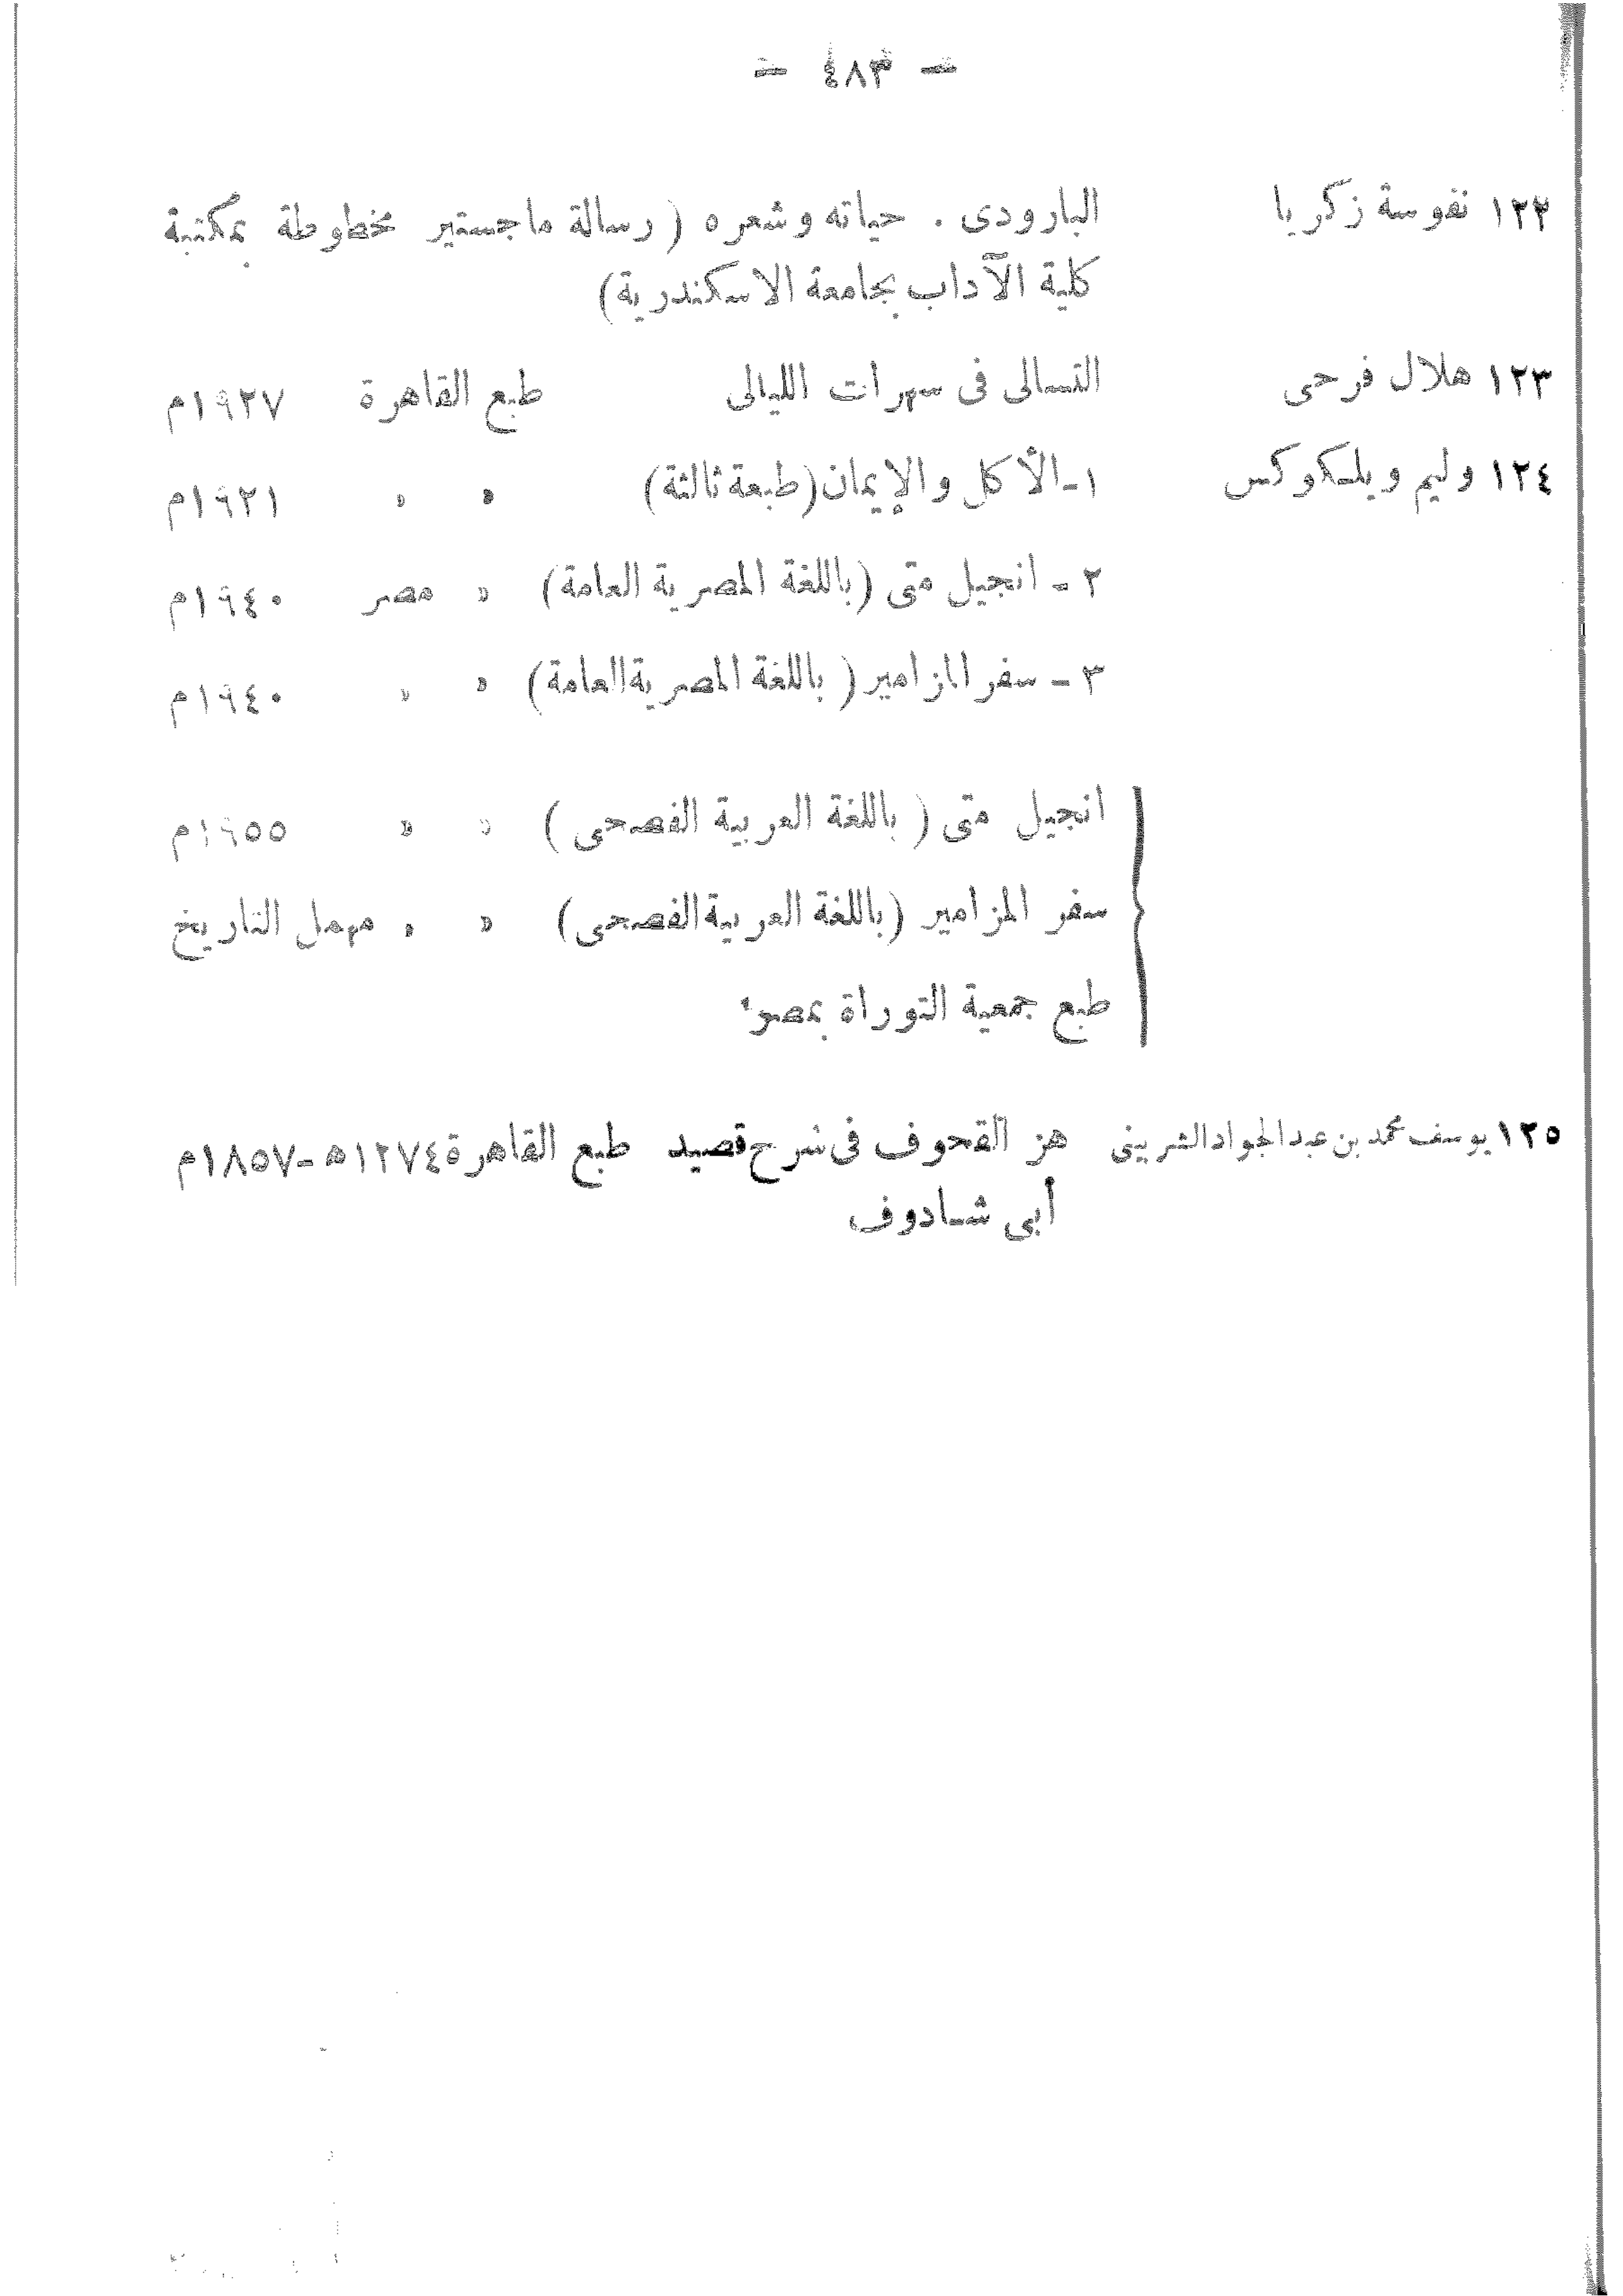 — ٤٨٣ —
١٢٢ نفوسة زكريا البارودى . حياته وشعره ( رسالة ماجستير مخطوطة بمكتبة
كلية الآداب بجامعة الاسكندرية)
١٢٣ هلال فرحى التسالى فى سهرات الليالى طبع القاهرة ١٩٢٧م
١٢٤ وليم ويلكوكس ١-الأكل والإيمان (طبعة ثالثة) » » ١٩٢١م
٢ - انجيل متى (باللغة المصرية العامة) » مصر ١٩٤٠م
٣ - سفر المزامير ( باللغة المصرية العامة) » » ١٩٤٠م
انجيل متى ( باللغة العربية الفصحى ) » » ١٩٥٥م
سفر المزامير (باللغة العربية الفصحى) » » مهمل التاريخ
طبع جمعية التوراة بمصر
١٢٥ يوسف محمد بن عبد الجواد الشربينى هز القحوف فى شرح قصيد طبع القاهرة ١٢٧٤ھ-١٨٥٧م
أبى شادوف